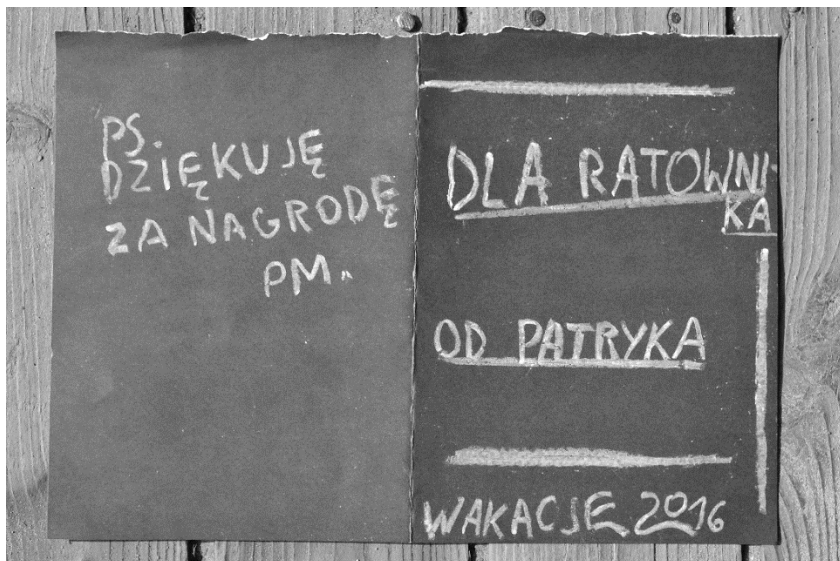 PS.
DZIĘKUJĘ
ZA NAGRODĘ
PM.
DLA RATOWNI-
KA
OD PATRYKA
WAKACJE 2016